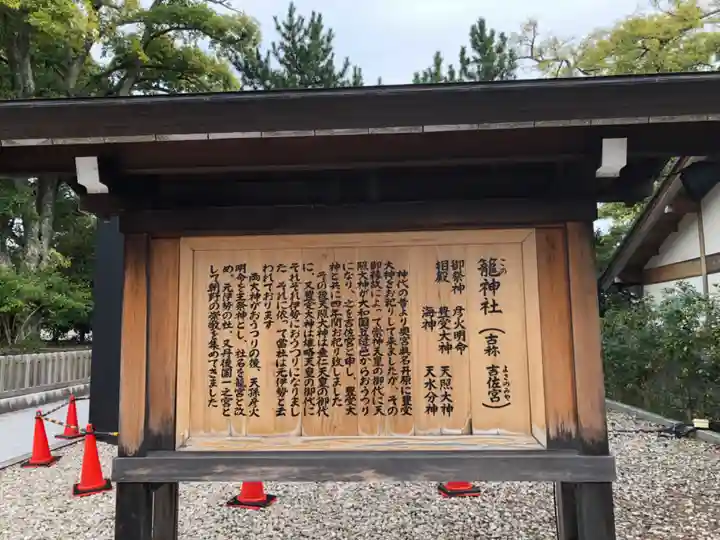 籠神社(古称 吉佐宮)
この
よさのみや
御祭神 彦火明命 天照大神
豊受大神
相殿
海神 天水分神
神代の昔より奥宮眞名井原に豊受
大神をお祀りして来ましたが、その
御縁故によって崇神天皇の御代に天
照大神が大和国笠縫邑からおうつり
になり、之を吉佐宮と申し、豊受大
神と共に四年間お祀り致しました
その後天照大神は垂仁天皇の御代
に、又豊受大神は雄略天皇の御代に
それぞれ伊勢におうつりになりまし
た。それに依って當社は元伊勢と云
われております
両大神がおうつりの後、天孫彦火
明命を主祭神とし、社名を籠宮と改
め、元伊勢の社、又丹後國一之宮と
して朝野の崇敬を集めてきました